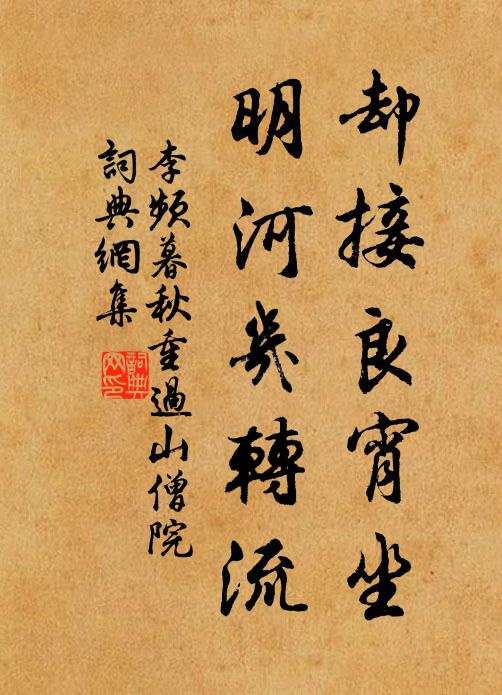 却接良宵坐
明河幾轉流
李頻暮秋重過山僧院
詞典網集
詞典
网印